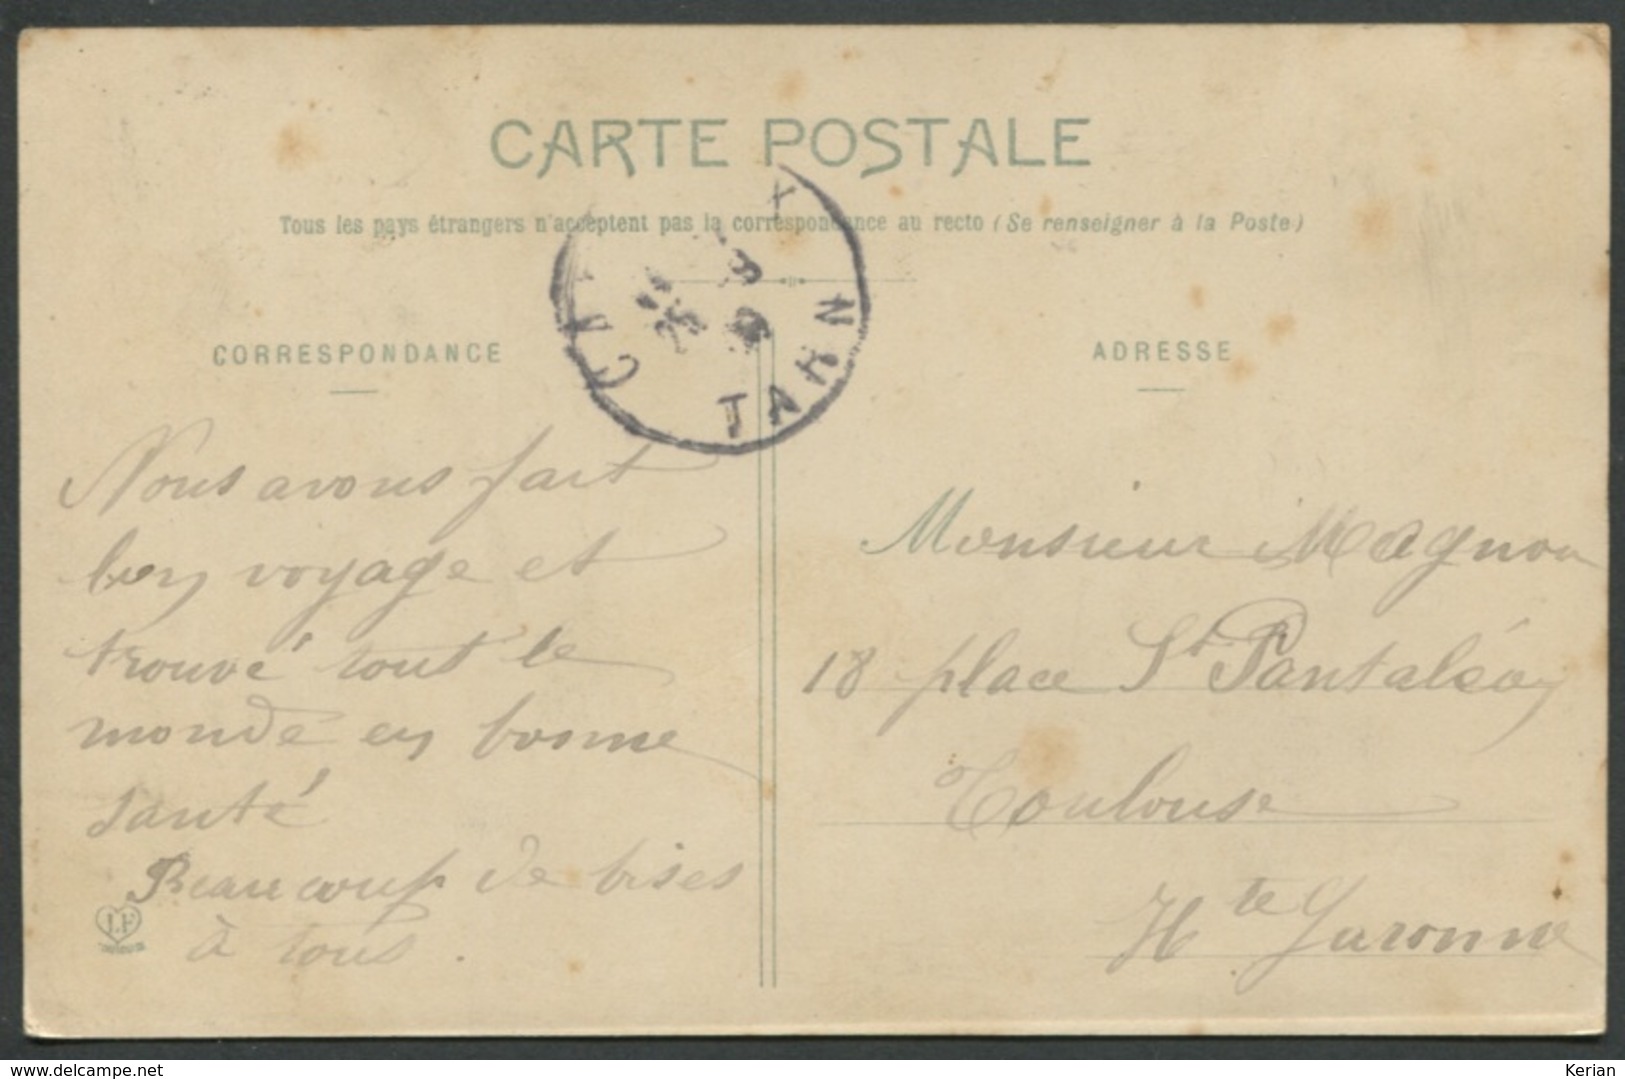 CARTE POSTALE
Tous les pays étrangers n'acceptent pas la correspondance au recto (Se renseigner à la Poste)
CORRESPONDANCE
ADRESSE
TARN
25
Nous avons fait
bon voyage et
trouvé tout le
monde en bonne
santé
Beaucoup de bises
à tous.
LF
Monsieur Magnon
18 place St Pantaléon
Toulouse
Hte Garonne
www.delcampe.net
Kerian